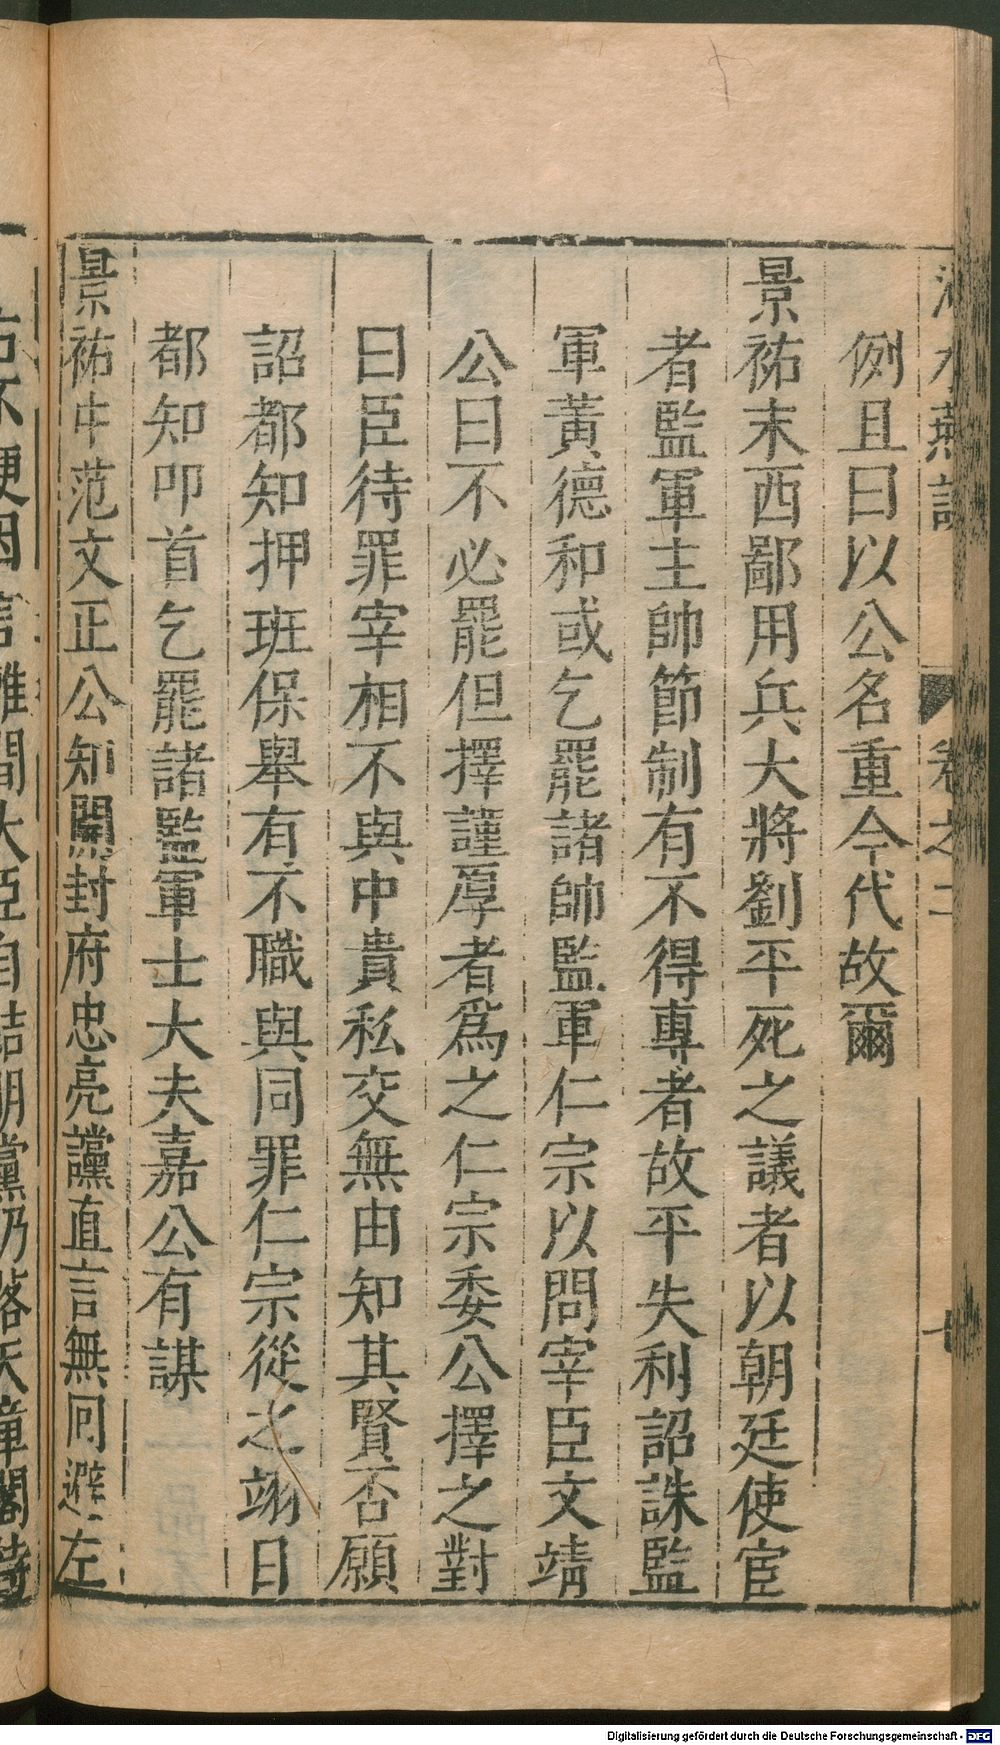 例且曰以公名重今代故爾
景祐末西鄙用兵大將劉平死之議者以朝廷使宦
者監軍主帥節制有不得專者故平失利詔誅監
軍黃德和或乞罷諸帥監軍仁宗以問宰臣文靖
公曰不必罷但擇謹厚者為之仁宗委公擇之對
曰臣待罪宰相不與中貴私交無由知其賢否願
詔都知押班保舉有不職與同罪仁宗從之翊日
都知叩首乞罷諸監軍士大夫嘉公有謀
景祐中范文正公知開封府忠亮讜直言無回避左
右不便因言離間大臣自結朋黨乃落天章閣待
Digitalisierung gefördert durch die Deutsche Forschungsgemeinschaft - DFG